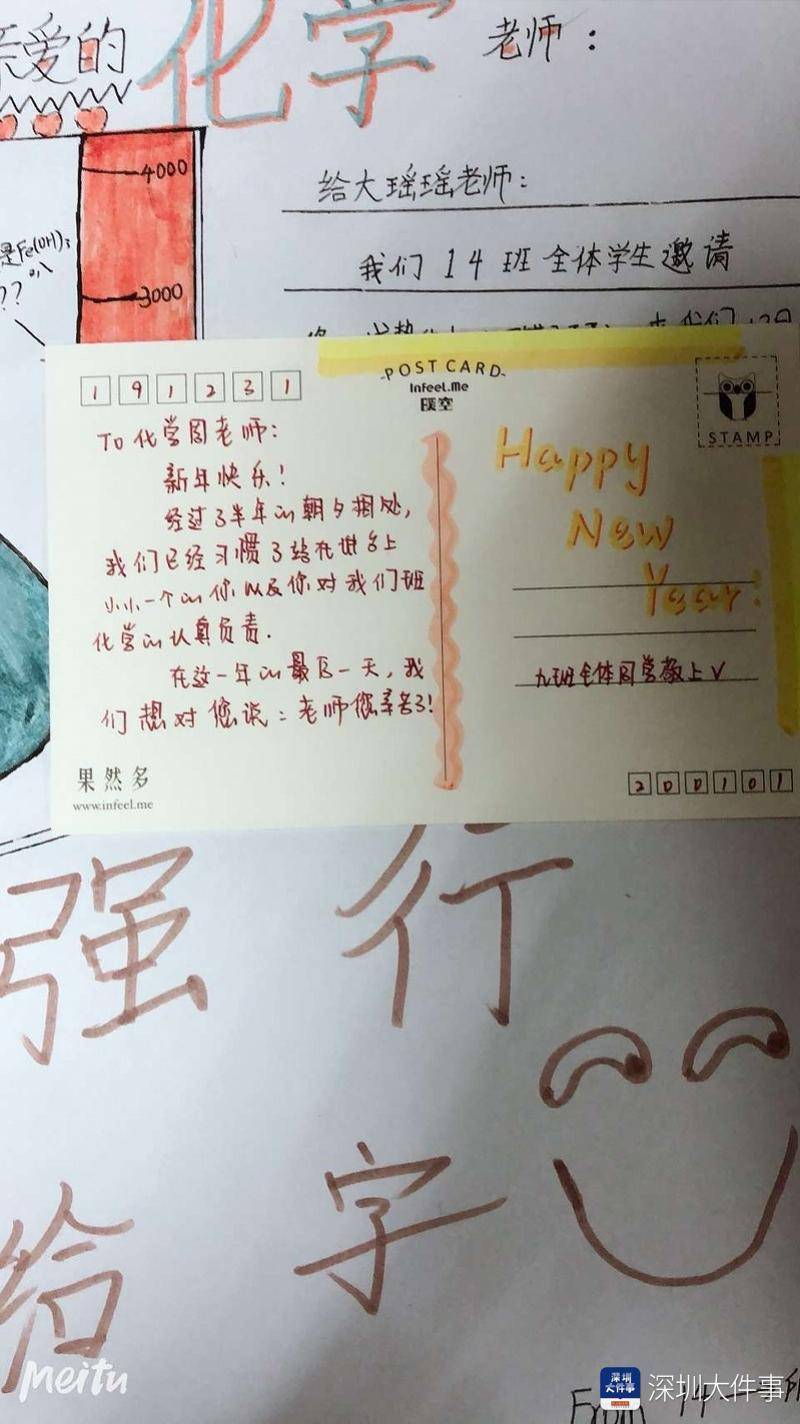 亲爱的
化学
老师：
4000
给大瑶瑶老师：
是Fe(OH)₃
??
我们14班全体学生邀请
3000
POST CARD
Infeel.Me
暖空
191231
STAMP
To 化学周老师：
新年快乐！
经过了半年的朝夕相处，
我们已经习惯了站在讲台上
小小一个的你以及你对我们班
化学的认真负责.
在这一年的最后一天，我
们想对您说：老师您辛苦了！
Happy
New
Year!
九班全体同学敬上
果然多
www.infeel.me
200101
强行
给字
From 14
meitu
深圳大件事
深圳大件事